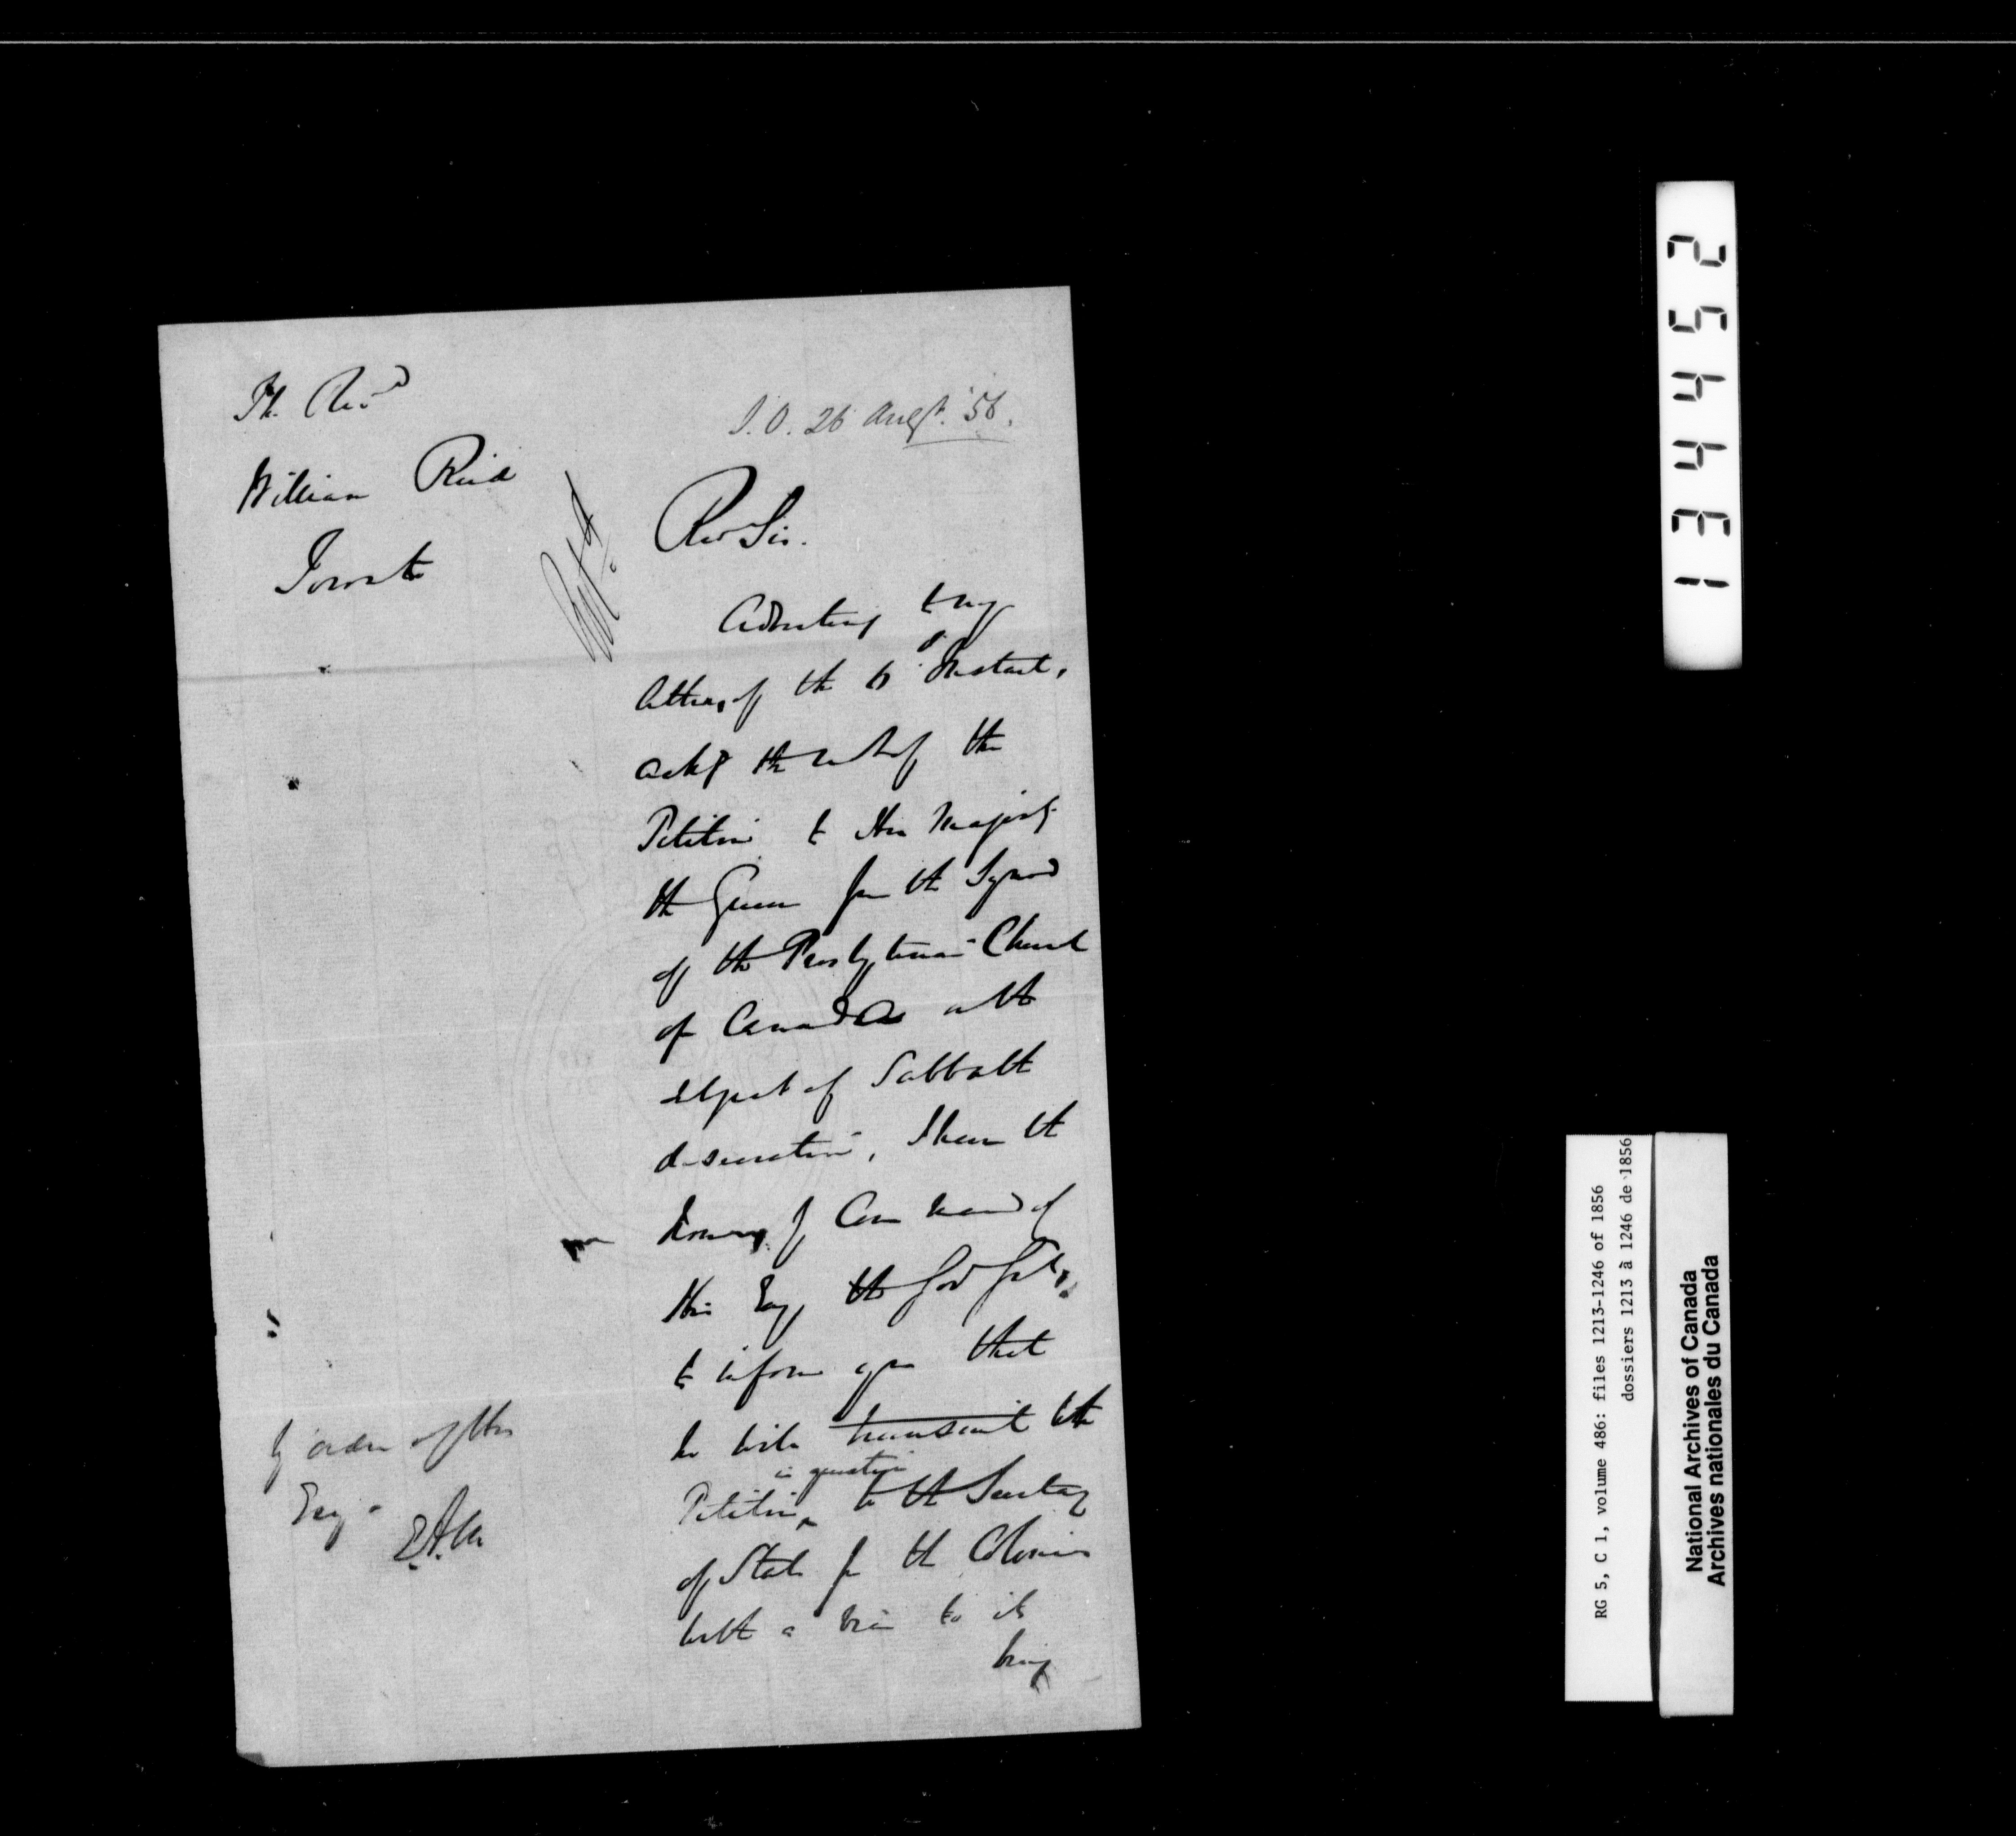 The Revd
William Reid
Toronto
S.O. 26 Augt. '56.
Rev Sir.
Adverting to my
letter of the 6 Instant,
ackg the rect of the
Petition to Her Majesty
the Queen from the Synod
of the Presbyterian Church
of Canada on the
subject of Sabbath
desecration, I have the
honor by Command of
His Exy the Gov Genl,
to inform you that
he will transmit the
in question
Petition ^ to the Secretary
of State for the Colonies
with a view to its
being
by order of His
Exy
1 3 4 4 5 2
RG 5, C 1, volume 486: files 1213-1246 of 1856
dossiers 1213 à 1246 de 1856
National Archives of Canada
Archives nationales du Canada